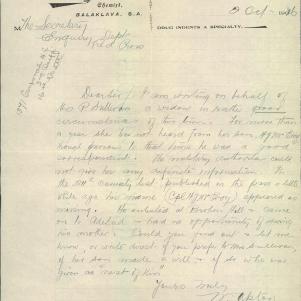 Chemist,
BALAKLAVA, S.A.
DRUG INDENTS A SPECIALTY.
2 Oct 1916
The Secretary
Enquiry Dept
Red Cross
Dear Sir, I am writing on behalf of
Mrs P Sullivan a widow in rather poor
circumstances of this town. For more than
a year she has not heard from her son,
previous to that time he was a good
correspondent. The military authorities could
not give her any definite information. In
the casualty list published in the press a little
while ago his name (Cpl) appeared as
missing. He enlisted at Broken Hill & came
on to Adelaide & had no opportunity of seeing
his mother. Could you find out & let me
know, or write direct if you prefer to Mrs Sullivan,
if her son made a will & if so who was
given as "next of kin".
Yours truly